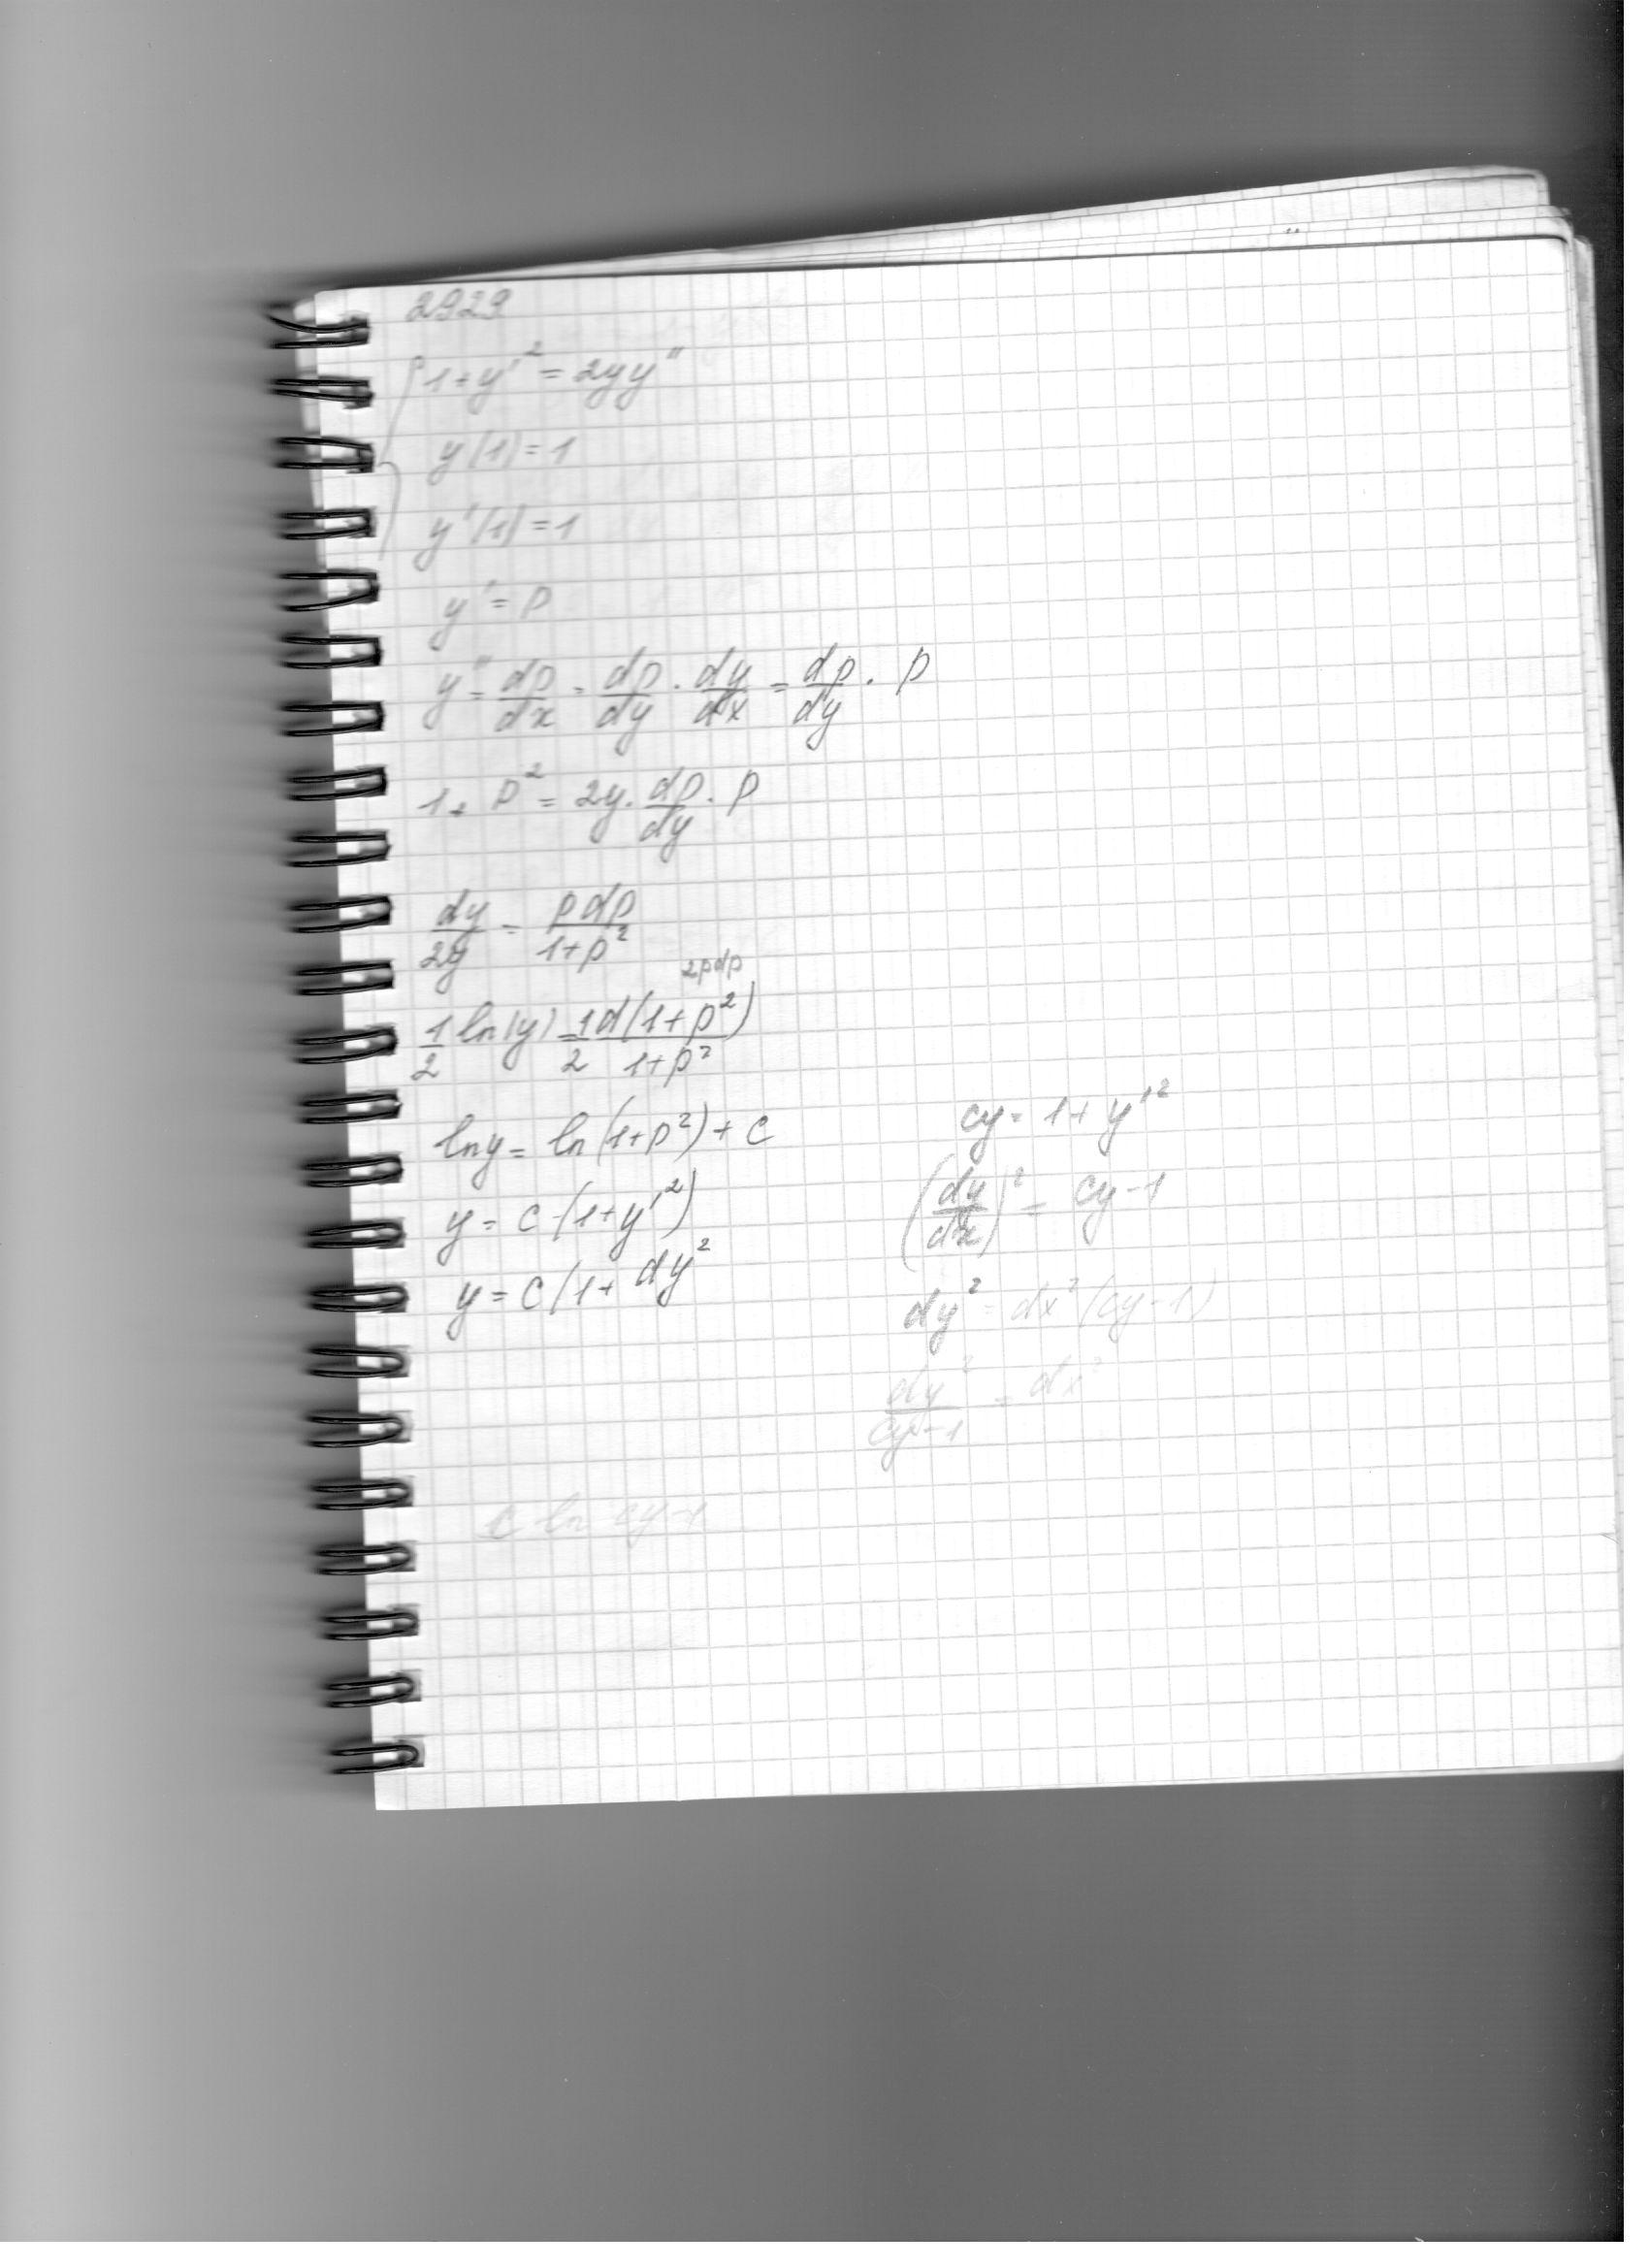 2929
{1+y'² = 2yy''
y(1)=1
y'(1)=1
y' = p
y'' = dp/dx = dp/dy · dy/dx = dp/dy · p
1+p² = 2y · dp/dy · p
dy/2y = pdp/1+p²
2pdp
1/2 ln|y| = 1/2 d(1+p²)/1+p²
ln y = ln(1+p²)+c
y = c·(1+y'²)
y = c(1+dy²
cy = 1+y'²
(dy/dx)² = cy-1
dy² = dx²(cy-1)
dy²/cy-1 = dx²
ln cy-1